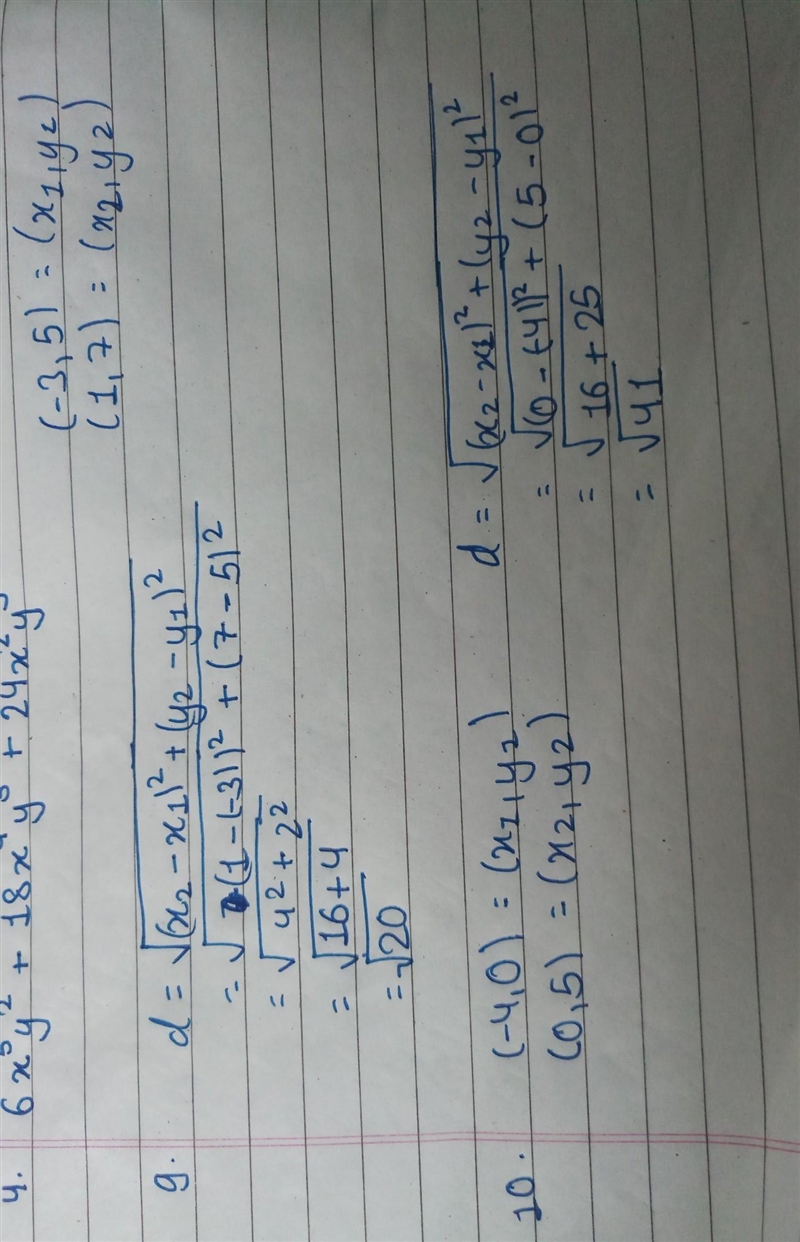 4. 6x⁵y² + 18x⁴y³ + 24x²y³
(-3,5) = (x1,y2)
(1,7) = (x2,y2)
9. d = √(x2-x1)²+(y2-y1)²
= √(1-(-3))² + (7-5)²
= √4²+2²
= √16+4
= √20
10. (-4,0) = (x1,y2)
(0,5) = (x2,y2)
d = √(x2-x1)²+(y2-y1)²
= √(0-(-4))²+(5-0)²
= √16+25
= √41